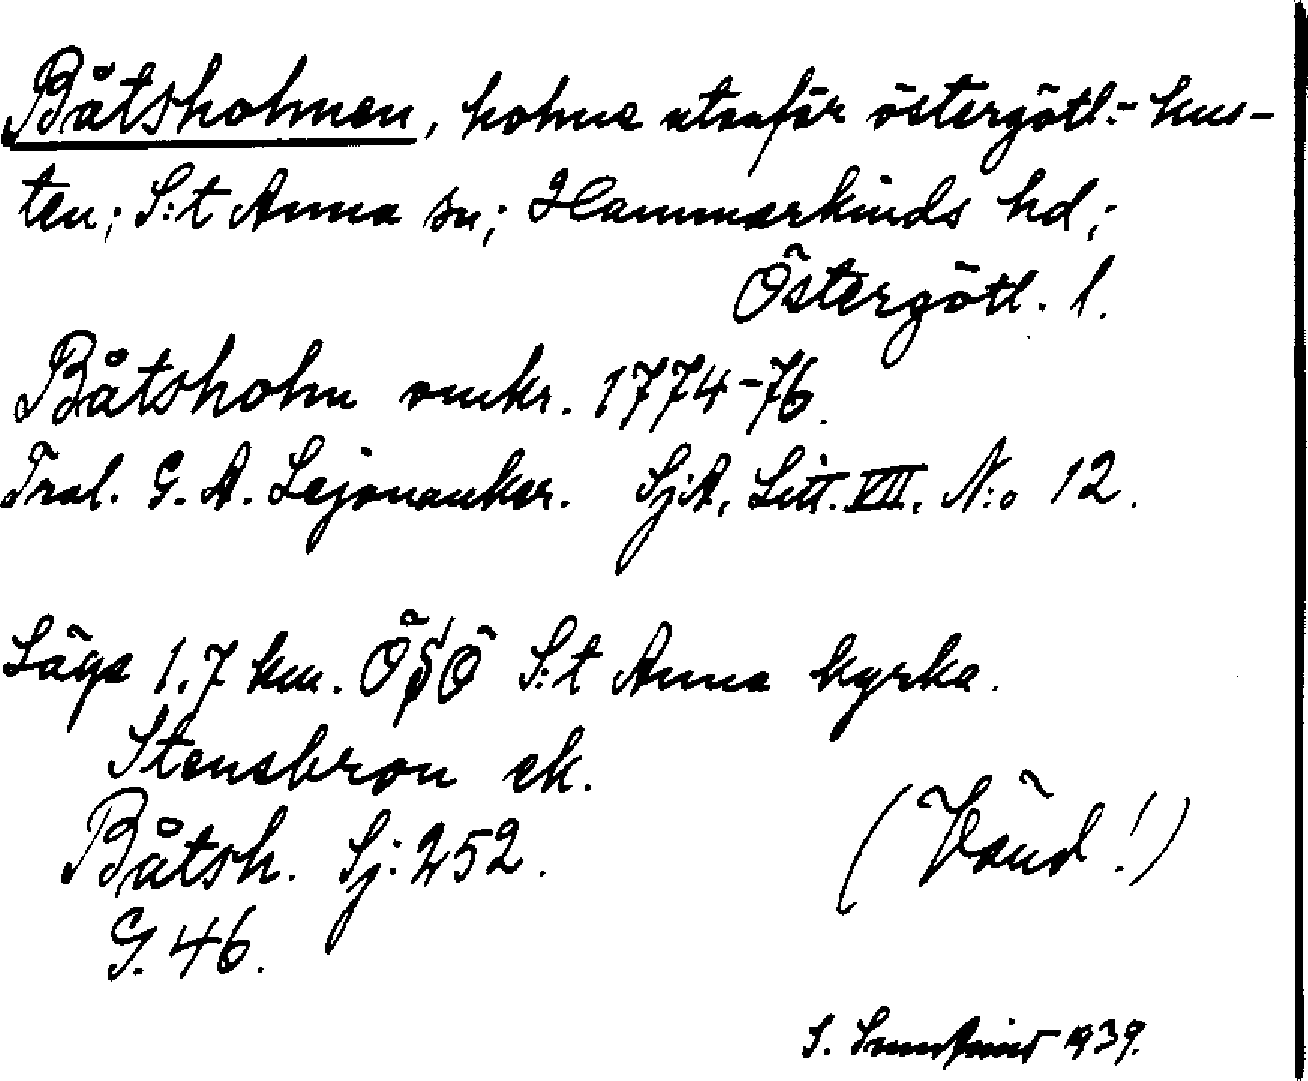 Båtsholmen, holme utanför östergötl:- kus-
ten; S:t Anna sn; Hammarkinds hd;
Östergötl. l.
Båtsholm omkr. 1774-76.
Tral. G. A. Lejonanker. SjA, Litt. VII. N:o 12.
Läge 1.7 km. ÖSÖ S:t Anna kyrka.
Stensbron ek.
Båtsh. Sj: 252.
G. 46.
(Vänd!)
S. 1939.